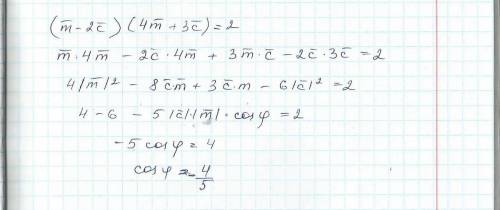 (m̅ - 2c̅) (4m̅ + 3c̅) = 2
m̅ · 4m̅ - 2c̅ · 4m̅ + 3m̅ · c̅ - 2c̅ · 3c̅ = 2
4|m̅|² - 8c̅m̅ + 3c̅·m - 6|c̅|² = 2
4 - 6 - 5|c̅|·|m̅| · cos φ = 2
-5 cos φ = 4
cos φ = -4/5